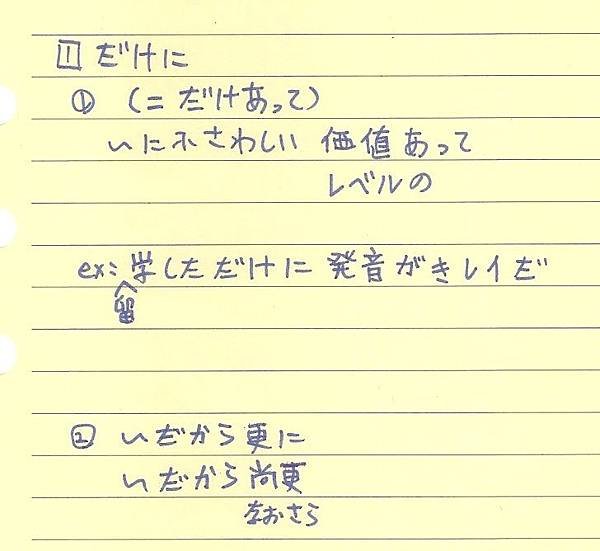 1 だけに
① (=だけあって)
〜にふさわしい 価値あって
レベルの
ex:留学しただけに 発音がきレイだ
② 〜だから更に
〜だから尚更
なおさら